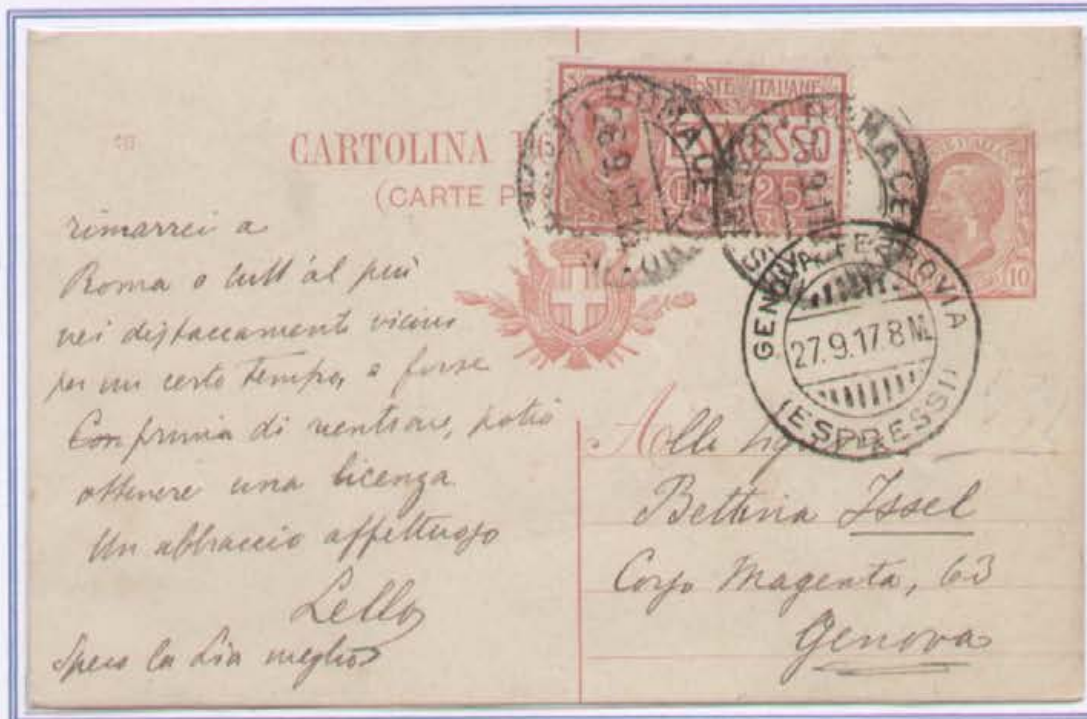 CARTOLINA
(CARTE P
POSTE ITALIANE
ESPRESSO
25
ROMA CE
ROMA CE
10
GENOVA FERROVIA
27.9.17.8M
(ESPRESSI)
rimarrei a
Roma o tutt'al più
nei distaccamenti vicini
per un certo tempo, e forse
prima di potrò
ottenere una licenza
Un abbraccio affettuoso
Lello
Spero la Lia meglio
Alla Sig
Bettina Issel
Corso Magenta, 63
Genova